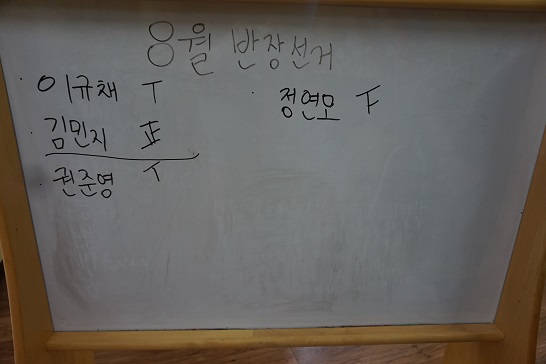 8월 반장선거
이규채 丅
정연모 下
김민지 正
권준영 丅